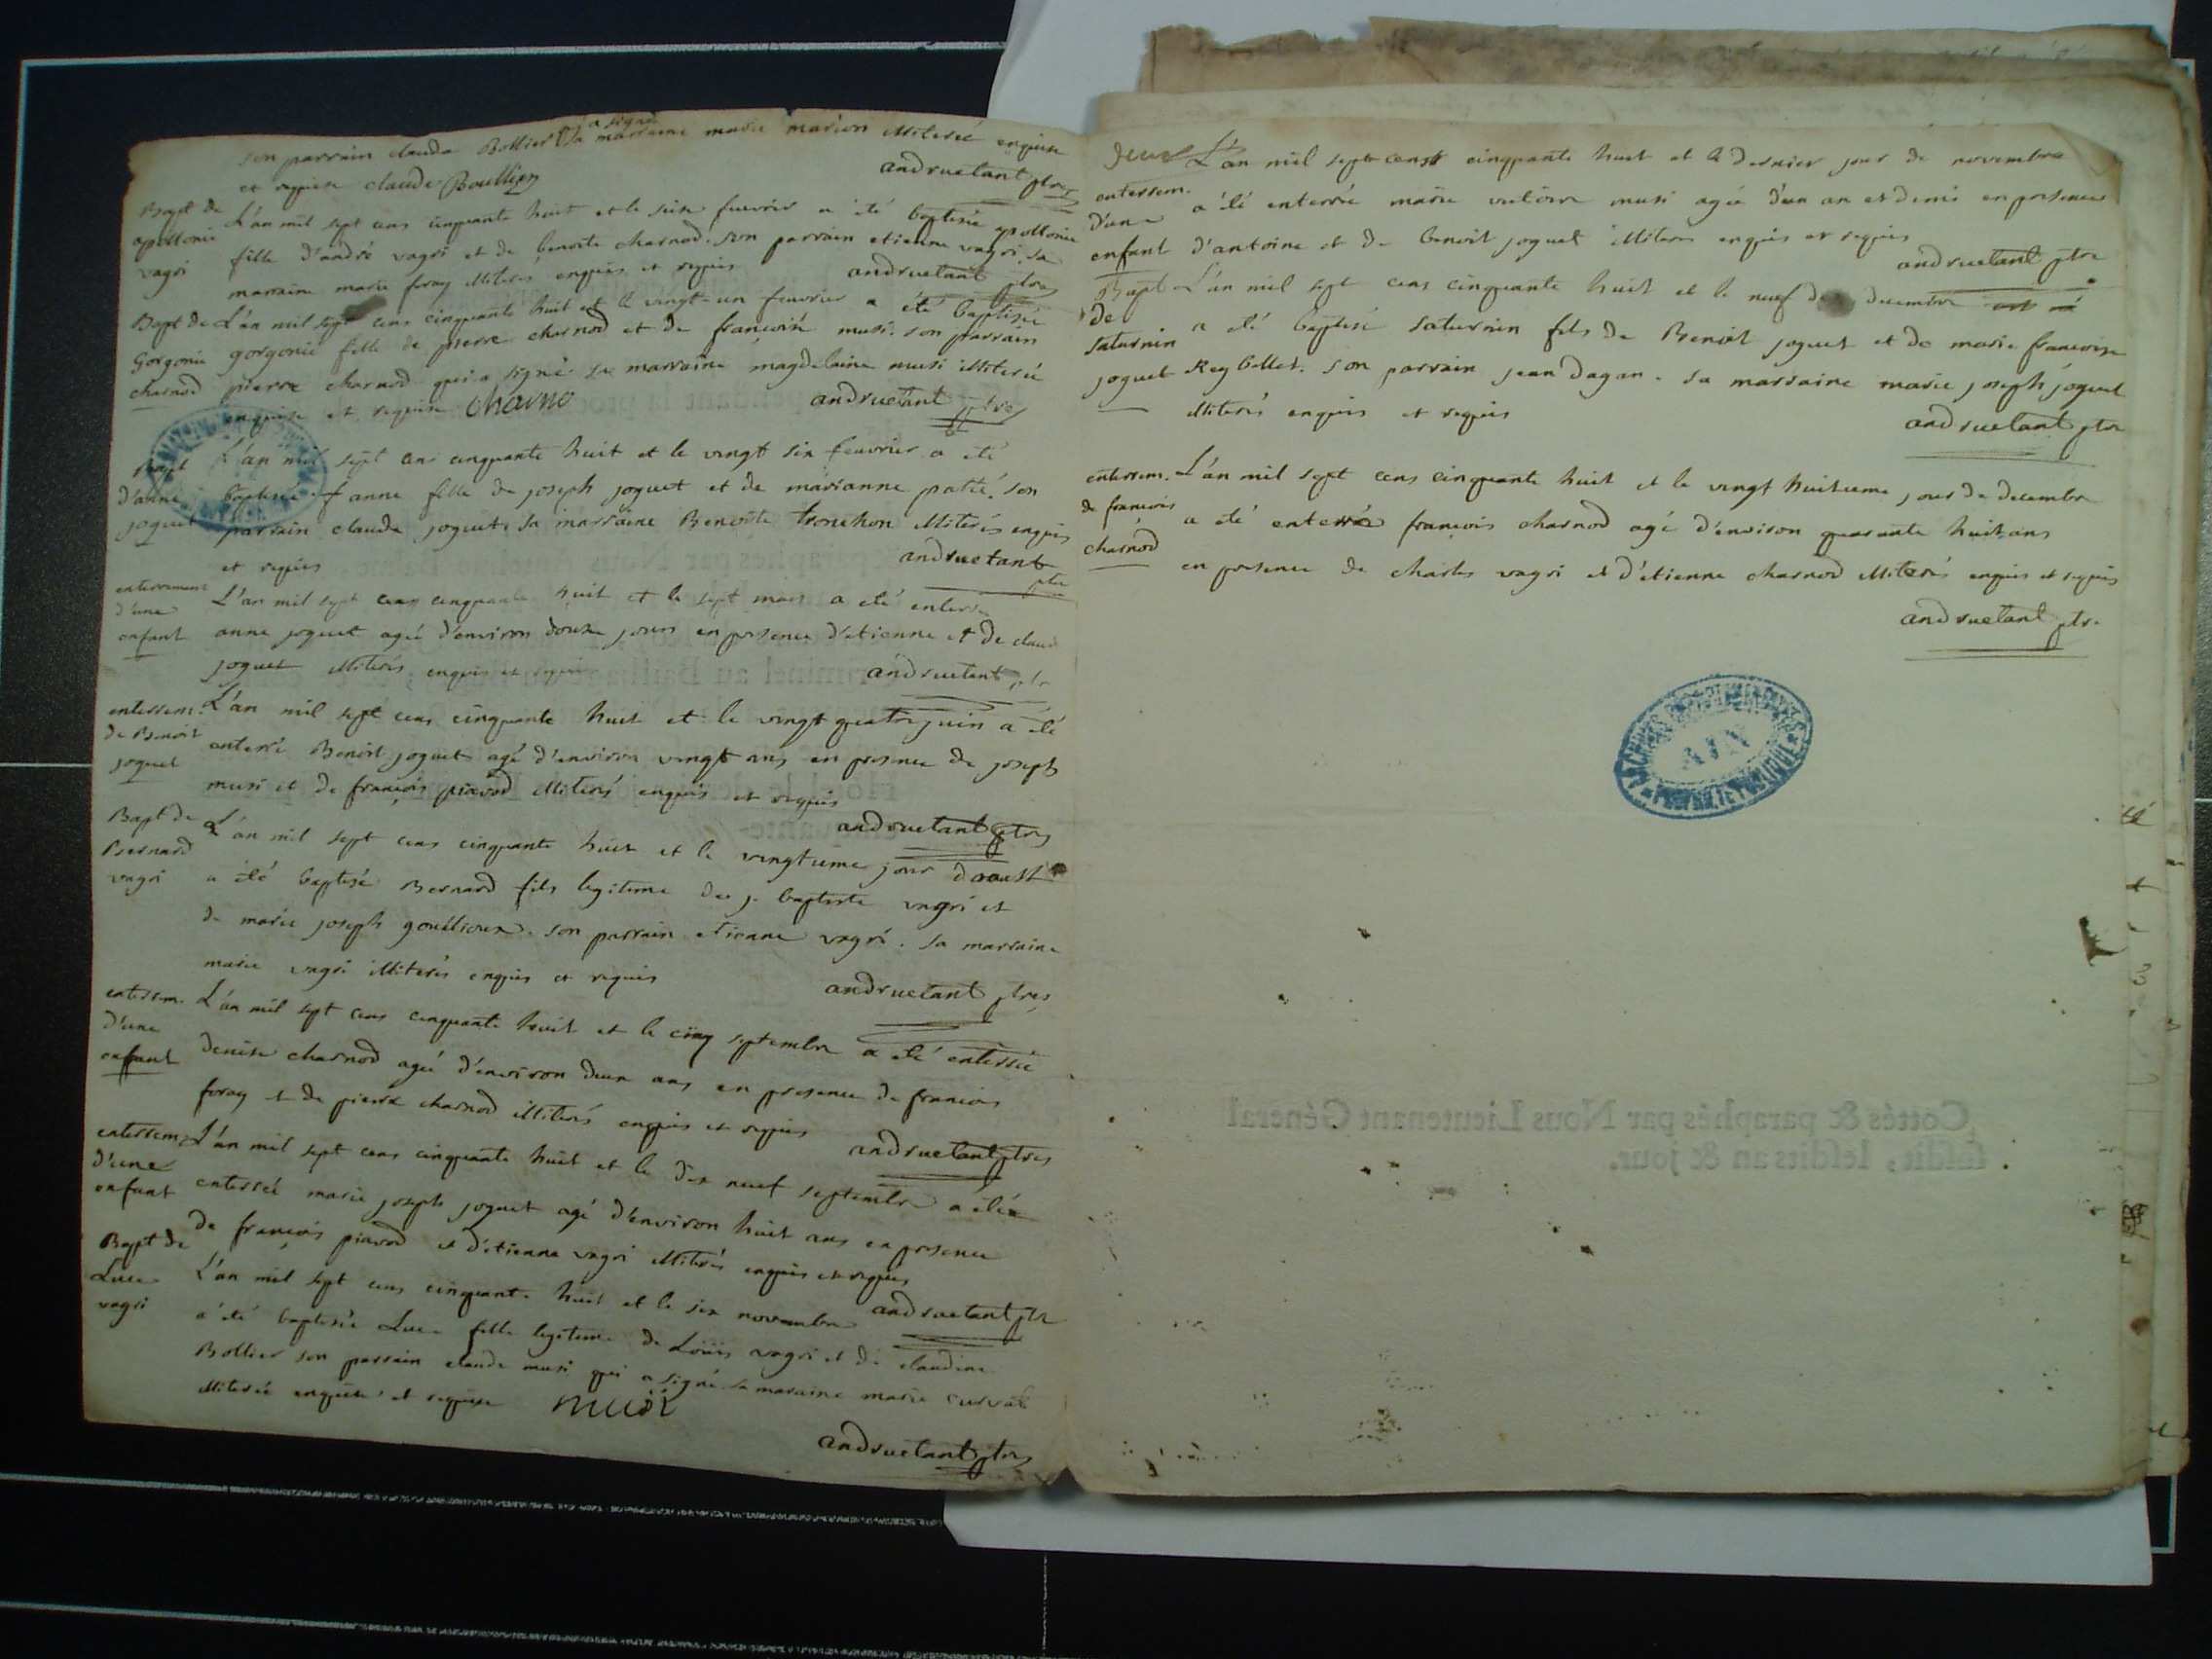 son parrain claude Bollier a signé sa marraine marie marion illiterée enquise
et requise claude Boullier andruetant ptre
Bapt de apollonie vagri
L'an mil sept cens cinquante huit et le seise feuvrier a été baptisée apollonie
fille d'andré vagri et de benoite charnod. son parrain etienne vagri. sa
marraine marie foray illiterés enquis et requis andruetant ptre
Bapt de Gorgonie charnod
L'an mil sept cens cinquante huit et le vingt-un feuvrier a été baptisée
gorgonie fille de pierre charnod et de françoise musi. son parrain
pierre charnod qui a signé sa marraine magdelaine musi illiterée
enquise et requise Charno andruetant ptre
Bapt d'anne joguet
L'an mil sept cens cinquante huit et le vingt six feuvrier a été
baptisée anne fille de joseph joguet et de marianne patié. son
parrain claude joguet. sa marraine Benoite tronchon illiterés enquis
et requis andruetant ptre
enterrement d'une enfant
L'an mil sept cens cinquante huit et le sept mars a été enterrée
anne joguet agée d'environ douze jours en presence d'etienne et de claude
joguet illiterés enquis et requis andruetant ptre
enterrem. de Benoit joguet
L'an mil sept cens cinquante huit et le vingt quatre juin a été
enterré Benoit joguet agé d'environ vingt ans en presence de joseph
musi et de françois piavod illiterés enquis et requis
andruetant ptre
Bapt de Bernard vagri
L'an mil sept cens cinquante huit et le vingtieme jour d'aoust
a été baptisé Bernard fils legitime de j. baptiste vagri et
de marie joseph gouillioux. son parrain etienne vagri. sa marraine
marie vagri illiterés enquis et requis andruetant ptre
enterrem. d'une enfant
L'an mil sept cens cinquante huit et le cinq septembre a été enterrée
denise charnod agée d'environ deux ans en presence de francois
foray et de pierre charnod illiterés enquis et requis
andruetant ptre
enterrem. d'une enfant
L'an mil sept cens cinquante huit et le dix neuf septembre a été
enterrée marie joseph joguet agé d'environ huit ans en presence
de françois piavod et d'etienne vagri illiterés enquis et requis
andruetant ptre
Bapt de Luce vagri
L'an mil sept cens cinquante huit et le six novembre
a été baptisée Luce fille legitime de Loüis vagri et de claudine
Bollier son parrain claude musi qui a signé sa maraine marie curvat
illiterée enquise et requise musi
andruetant ptre
enterrem. d'une enfant
L'an mil sept cens cinquante huit et le dernier jour de novembre
a été enterrée marie victoire musi agée d'un an et demi en presence
d'antoine et de benoit joguet illiterés enquis et requis
andruetant ptre
Bapt de saturnin joguet
L'an mil sept cens cinquante huit et le neuf de decembre
a été baptisé saturnin fils de Benoit joguet et de marie francoise
Reybollet. son parrain jean dagan. sa marraine marie joseph joguet
illiterés enquis et requis
andruetant ptre
enterrem. de francois charnod
L'an mil sept cens cinquante huit et le vingt huitieme jour de decembre
a été enterré françois charnod agé d'environ quarante huit ans
en presence de charles vagri et d'etienne charnod illiterés enquis et requis
andruetant ptre
AIN
Cottés & paraphés par Nous Lieutenant Général
susdit, lesdits an & jour.